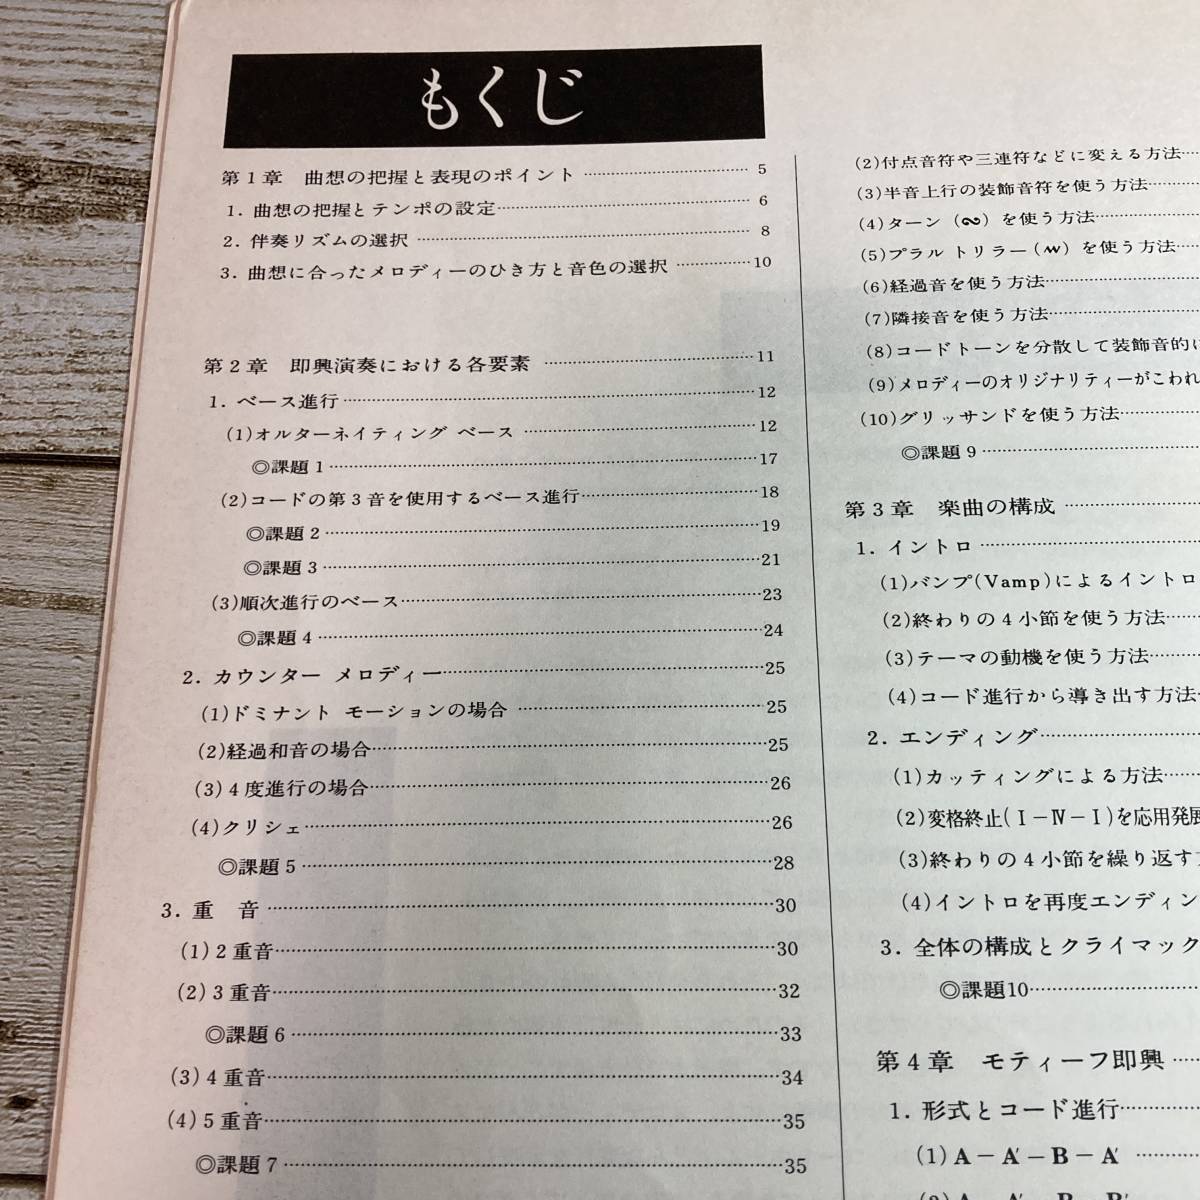 もくじ
第1章　曲想の把握と表現のポイント ……………… 5
1. 曲想の把握とテンポの設定……………… 6
2. 伴奏リズムの選択 ……………… 8
3. 曲想に合ったメロディーのひき方と音色の選択 …………10
第2章　即興演奏における各要素 ……………11
1. ベース進行……………12
(1)オルターネイティング ベース ……………12
◎課題1……………17
(2)コードの第3音を使用するベース進行……………18
◎課題2……………19
◎課題3……………21
(3)順次進行のベース……………23
◎課題4……………24
2. カウンター メロディー……………25
(1)ドミナント モーションの場合 ……………25
(2)経過和音の場合……………25
(3)4度進行の場合……………26
(4)クリシェ……………26
◎課題5……………28
3. 重　音……………30
(1)2重音……………30
(2)3重音……………32
◎課題6……………33
(3)4重音……………34
(4)5重音……………35
◎課題7……………35
(2)付点音符や三連符などに変える方法……
(3)半音上行の装飾音符を使う方法……
(4)ターン（∽）を使う方法……
(5)プラル トリラー（）を使う方法……
(6)経過音を使う方法……
(7)隣接音を使う方法……
(8)コードトーンを分散して装飾音的に
(9)メロディーのオリジナリティーがこわれ
(10)グリッサンドを使う方法……
◎課題9……
第3章　楽曲の構成……
1. イントロ……
(1)バンプ(Vamp)によるイントロ
(2)終わりの4小節を使う方法……
(3)テーマの動機を使う方法……
(4)コード進行から導き出す方法…
2. エンディング……
(1)カッティングによる方法……
(2)変格終止(Ⅰ－Ⅳ－Ⅰ)を応用発展
(3)終わりの4小節を繰り返す
(4)イントロを再度エンディン
3. 全体の構成とクライマック
◎課題10……
第4章　モティーフ即興……
1. 形式とコード進行……
(1) A－A′－B－A′ ……